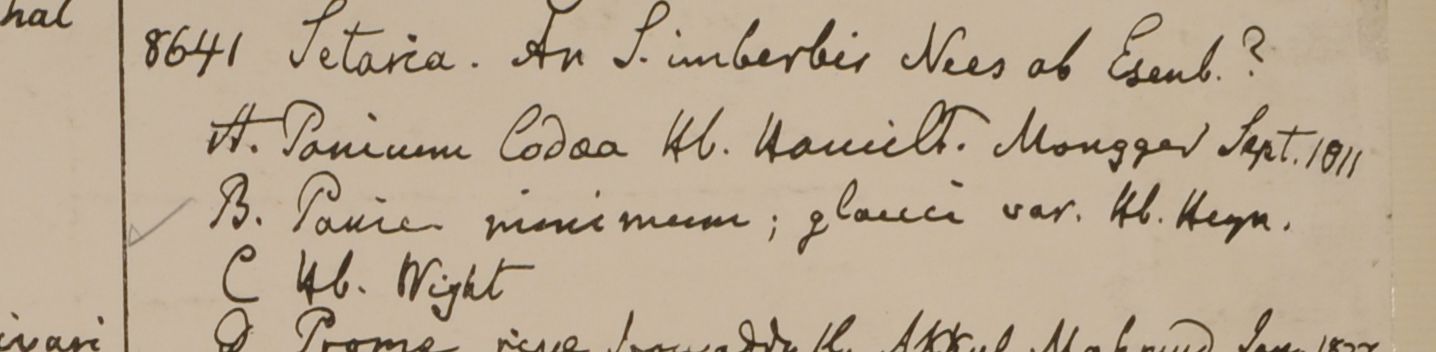 hal
8641 Setaria. An S. imberbis Nees ab Esenb.?
A. Panicum Codaa Hb. Hamilt. Mongger Sept. 1811
B. Panic. minimum; glauci var. Hb. Heyn.
C Hb. Wight
ivari
D Prome ripe Irrawaddy